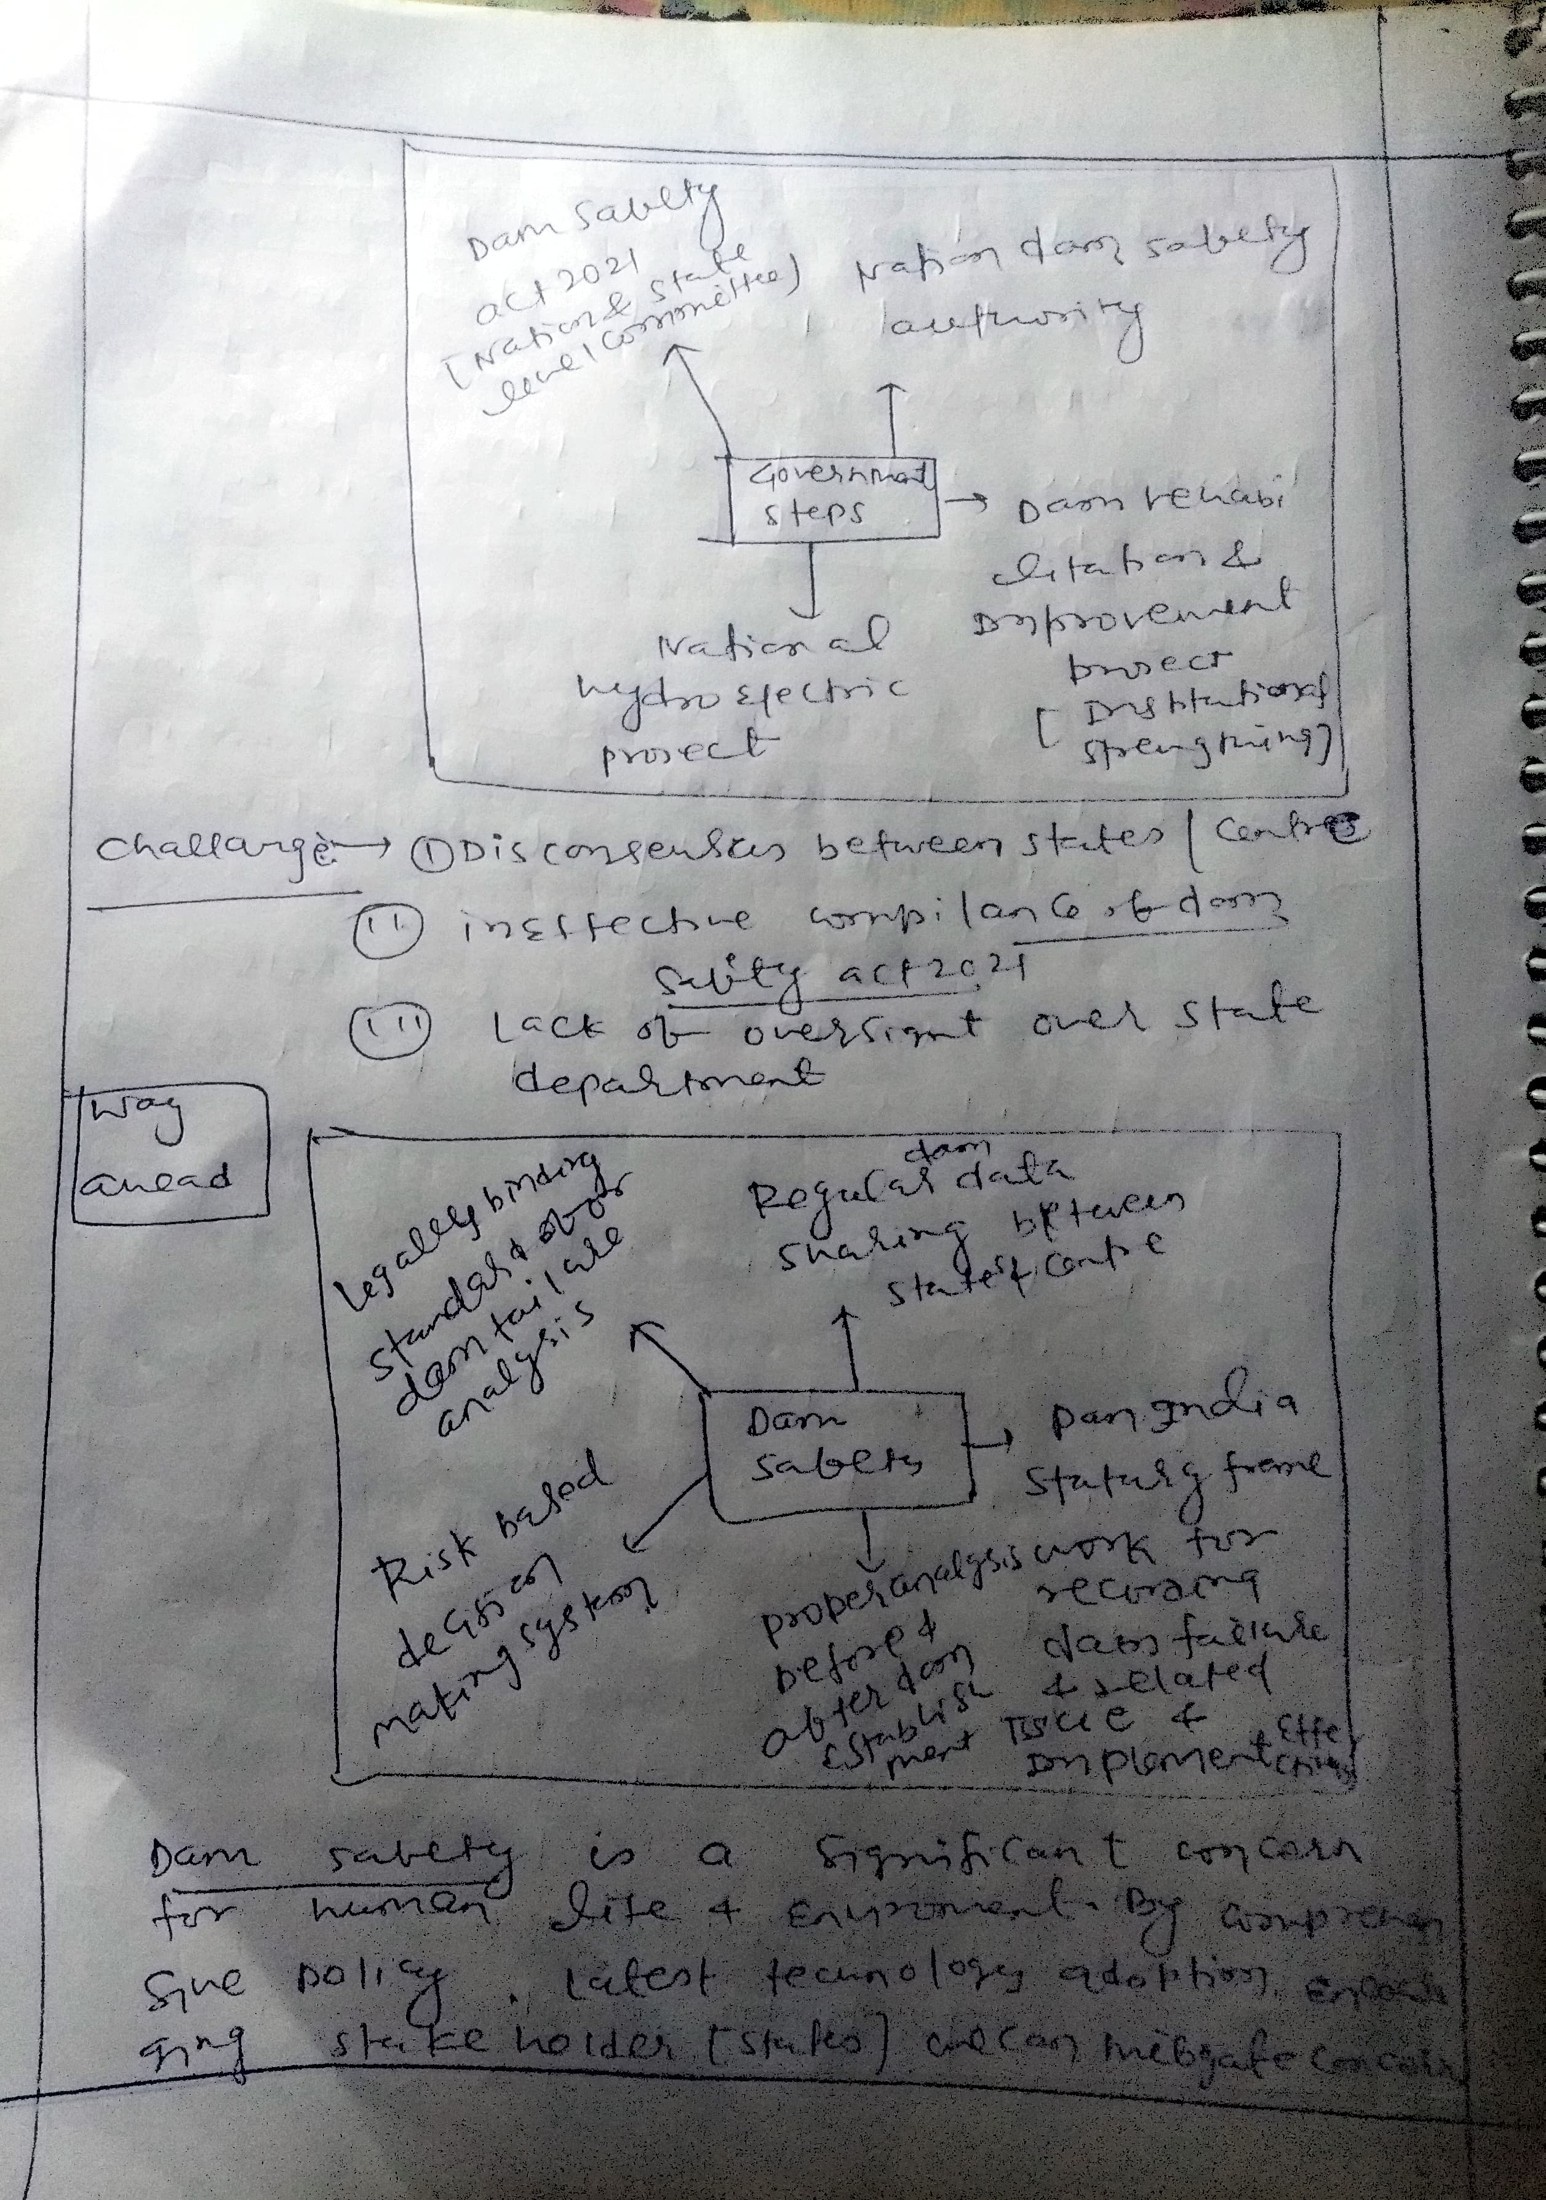 Dam Safety
act 2021
[Nation & State
level committee)
Nation dam safety
authority
Government
steps
Dam rehabi
litation &
Improvement
project
[Institutional
strengthing]
National
hydro Electric
project
Challange → ① Disconsensus between states / Centre
(ii) inEffective compilance of dam
Safity act 2021
(iii) Lack of oversight over State
department
Way
ahead
legally binding
standard for
dam failure
analysis
dam
Regular data
sharing between
states & centre
Dam
safety
Pan India
Statury frame
work for
recording
dam failure
& related
Issue &
Implement Effe
proper analysis
before &
after dam
Establish
ment
Risk based
decision
making system
Dam safety is a significant concern
for human life & Enviroment. By comprehen
sive policy, latest technology adoption,
ging stake holder [states] we can mitigate concern